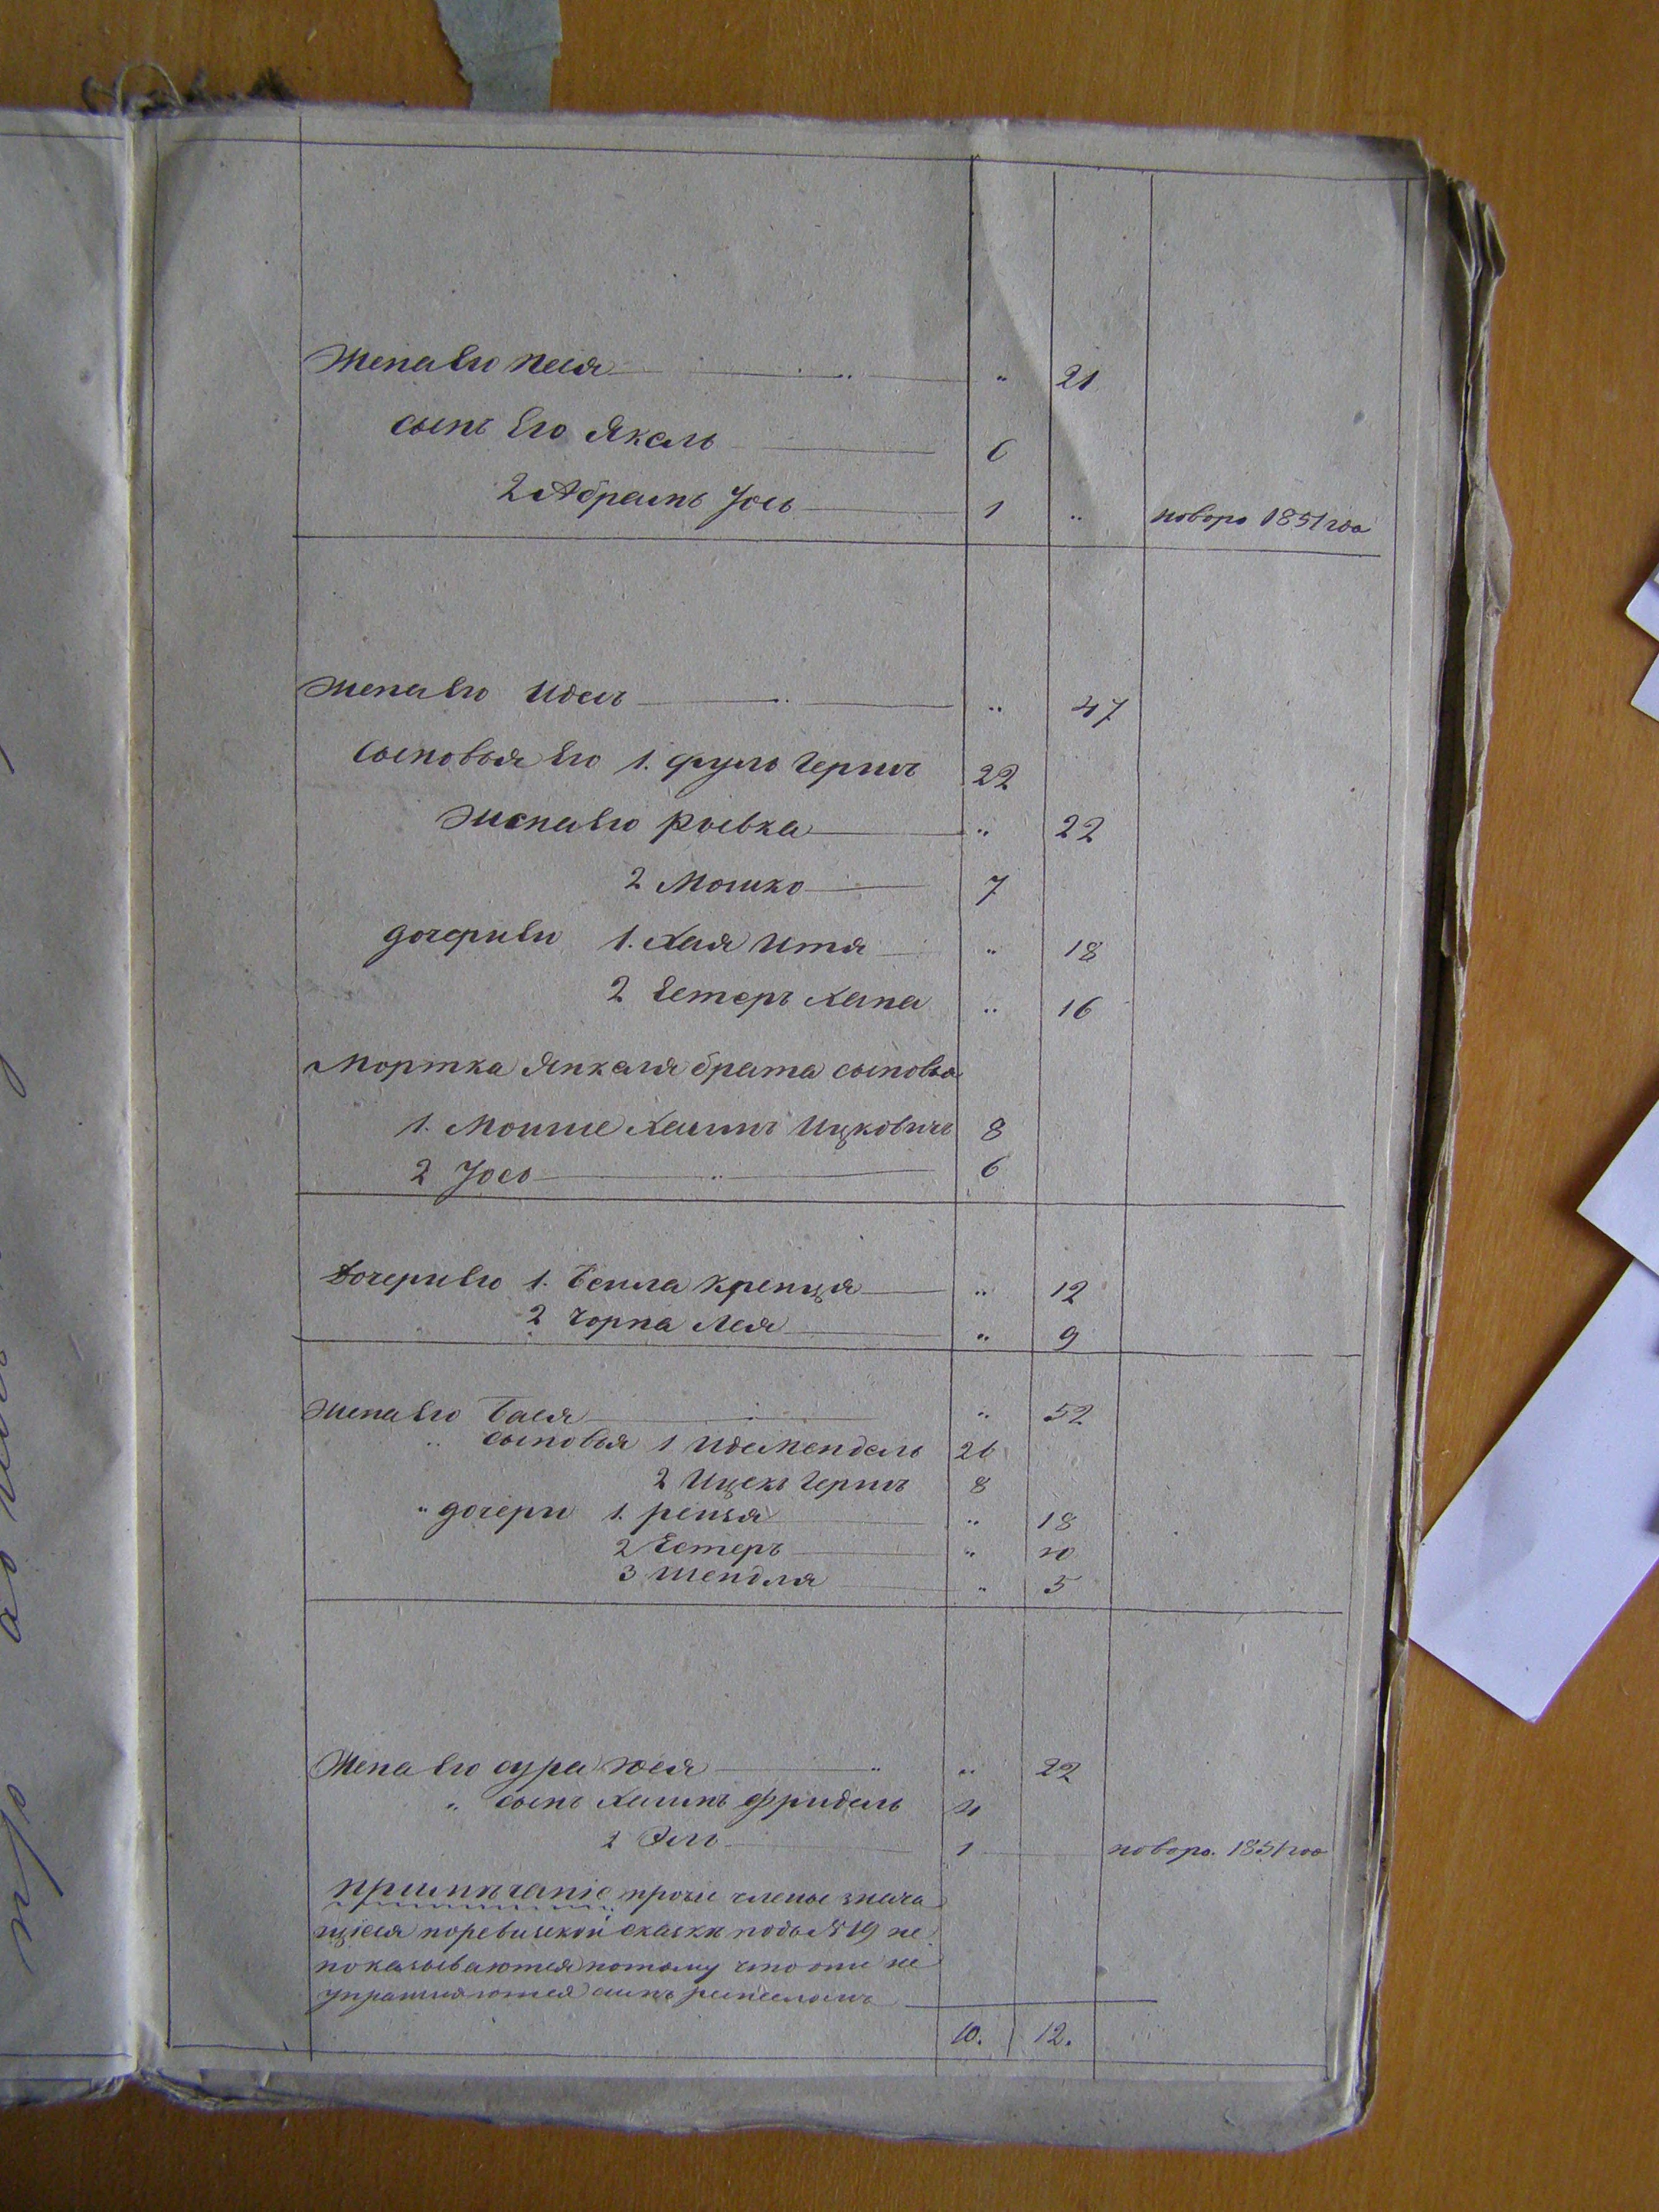 Жена Его Песя " 21
сынъ Его Якель 6
2 Абрамъ Іось 1 " новоро 1851 года
Жена Его Идесъ " 47
сыновья Его 1. Фуль Гершъ 22
Жена Его Ривка " 22
2 Мошко 7
дочери Ев 1. Хая Итя " 18
2 Естеръ Хана " 16
Мортка Янкеля брата сыновья
1. Мошше Хаимъ Ицковичъ 8
2 Іось 6
Дочери Его 1. Бейла Крейнця " 12
2 Чорна Лея " 9
Жена Его Бася " 52
" сыновья 1 Идельмендель 26
2 Ицекъ Гершъ 8
" дочери 1. Рейзя " 18
2 Естеръ " 10
3 Шендля " 5
Жена Его Сура Хася " 22
" сынъ Хаимъ Фридель 4
2 Эль 1 новоро. 1851 года
Примѣчаніе прочіе члены знача
щіеся поревизской сказки подъ № 19 не
показываются потому что они не
упражняются симъ ремесломъ
10. 12.